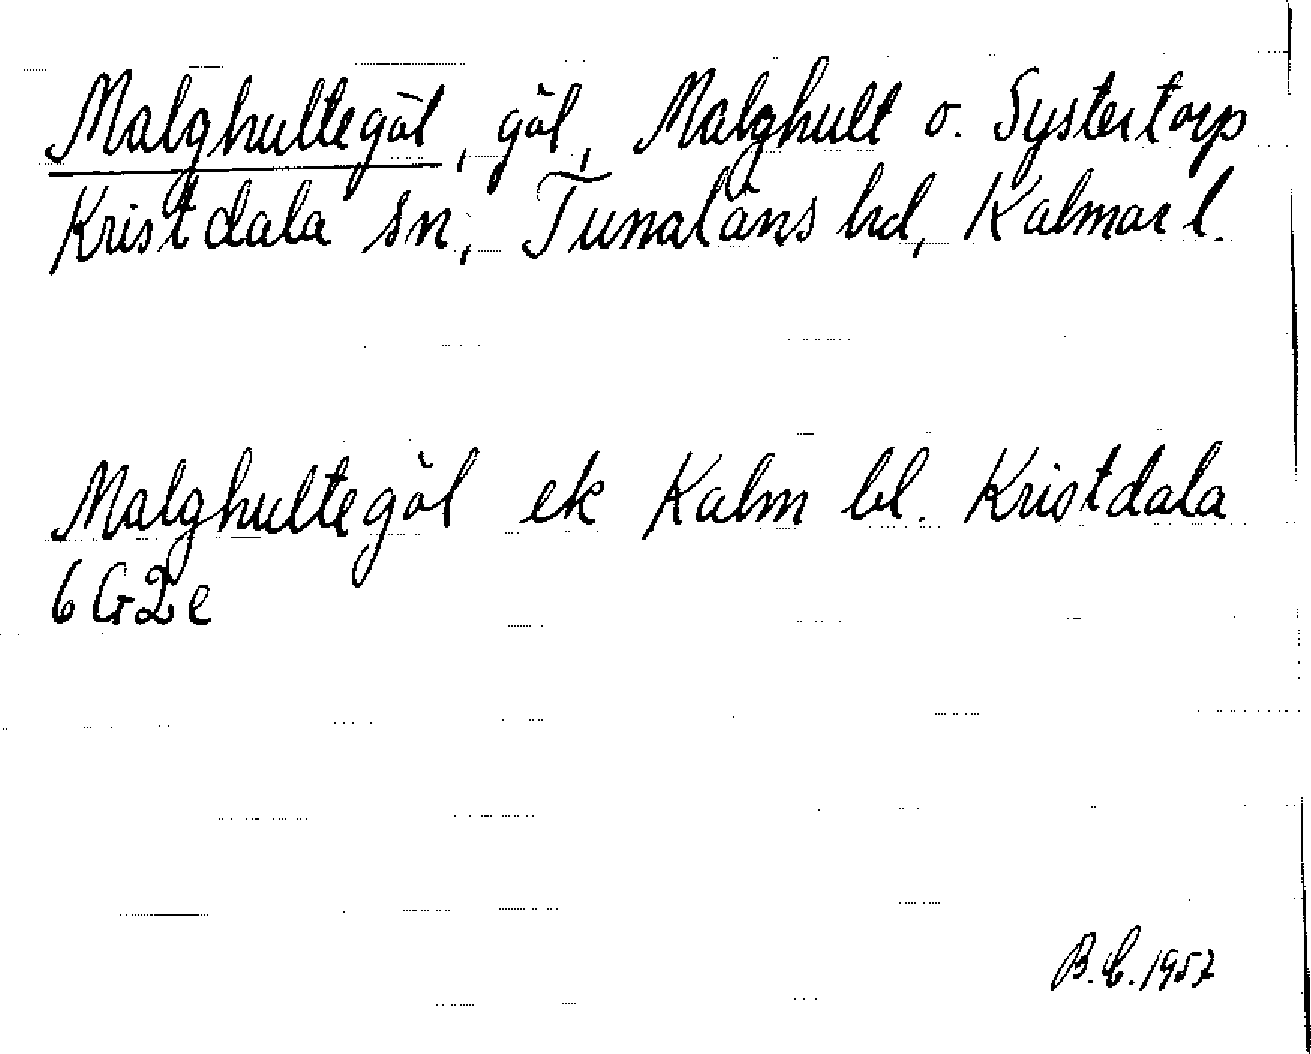 Malghultegöl, göl, Malghult o. Systertorp
Kristdala sn, Tunaläns hd, Kalmar l.
Malghultegöl ek Kalm bl. Kristdala
6 G 2 e
B.C. 1957